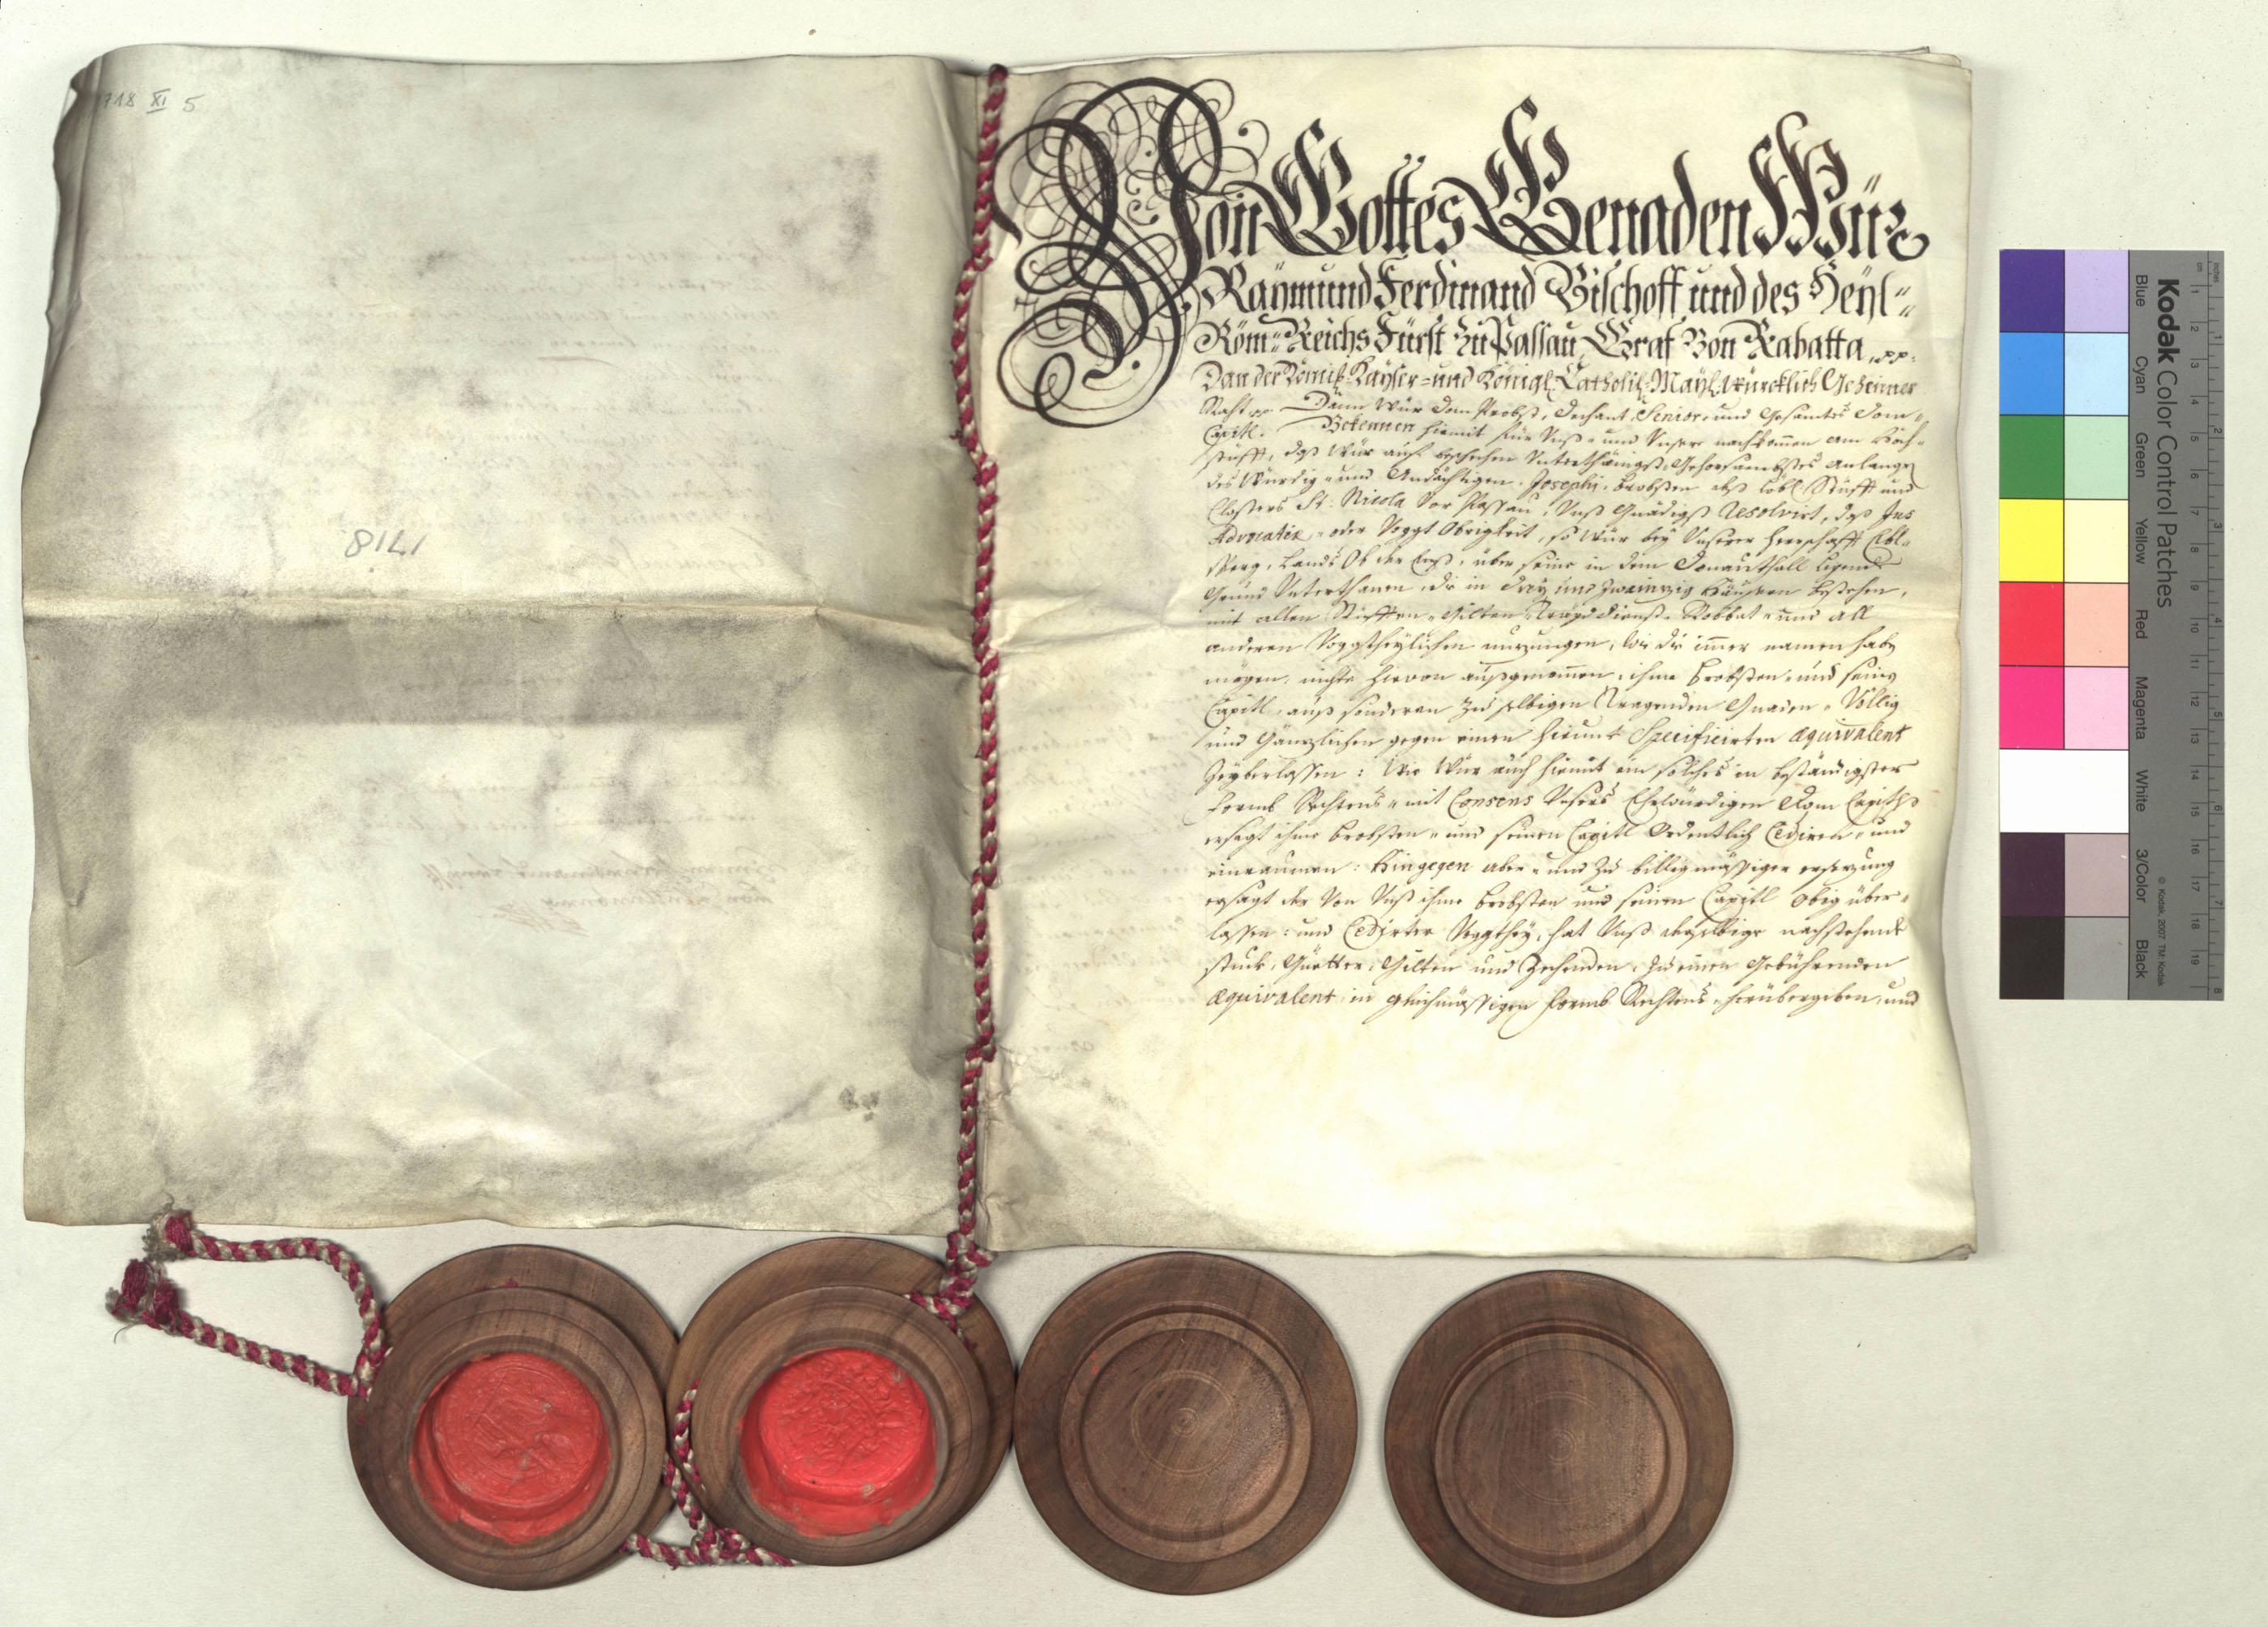 1718 XI 5
1718
Von Gottes Genaden Wür
Raÿmund Ferdinand Bischoff und des Heyl=
Röm: Reichs Fürst Zu Passau, Graf Von Rabatta, pp:
Dan der Römisch: Kayser= und Königl: Catholis: Mayl: würcklich Geheimer
Rath pp. Dann Wür Dom Probst, Dechant, Senior, und Gesamtes Dom=
Capitl. Bekennen hiemit für Unß= und Unsere nachkomen am Hoch=
stüfft, daß Wür auf beschehen Unterthänigst=Gehorsambstes Anlangen
des Würdig= und Andächtigen Josephi, Brobsten deß löbl: Stüfft und
Closters St: Nicola Vor Passau, Unß Gnädigst Resolvirt, daß Jus
Advocatiæ, oder Voggt Obrigkeit, so Wür bey Unserer Herrschafft Ebl=
sperg, Lands Ob der Enß, über seine in dem Donauthall ligende
Grund Unterthanen, die in Drey und Zwainzig Häusern bestehen,
mit allen Stüfften, Gilten, Trayd Dienst, Robbat= und all
anderen Voggtheylichen nuzungen, wie die imer namen haben
mögen, nichts hievon außgenomen, ihme Brobsten, und seinen
Capitl, auß sonderen zu selbigen Tragenden Gnaden, Völlig
und Gänzlichen gegen einen hierunt Specificirten æquivalent
Zyberlassen: Wie Wür auch hiemit ein solches in beständigster
Formb Rechtens, mit Consens Unsers Ehrwürdigen Dom Capitls
ersagt ihme Brobsten, und seinen Capitl Ordentlich Cediren, und
einraumen: Hingegen aber, und Zu billigmässiger ersezung
ersagt der Von Unß ihme Brobsten und seinen Capitl Obig über=
lassen: und Cedirter Voggthey, hat Unß derselbige nachstehende
stuck, Güetter, Gilten und Zehenden, Zu einen Gebührenden
æquivalent in gleichmässigen Formb Rechtens, herübergeben, und
Kodak Color Control Patches
Blue Cyan Green Yellow Red Magenta White 3/Color Black
© Kodak, 2007 TM: Kodak
cm 1 2 3 4 5 6 7 8 9 10 11 12 13 14 15 16 17 18 19
inches 1 2 3 4 5 6 7 8